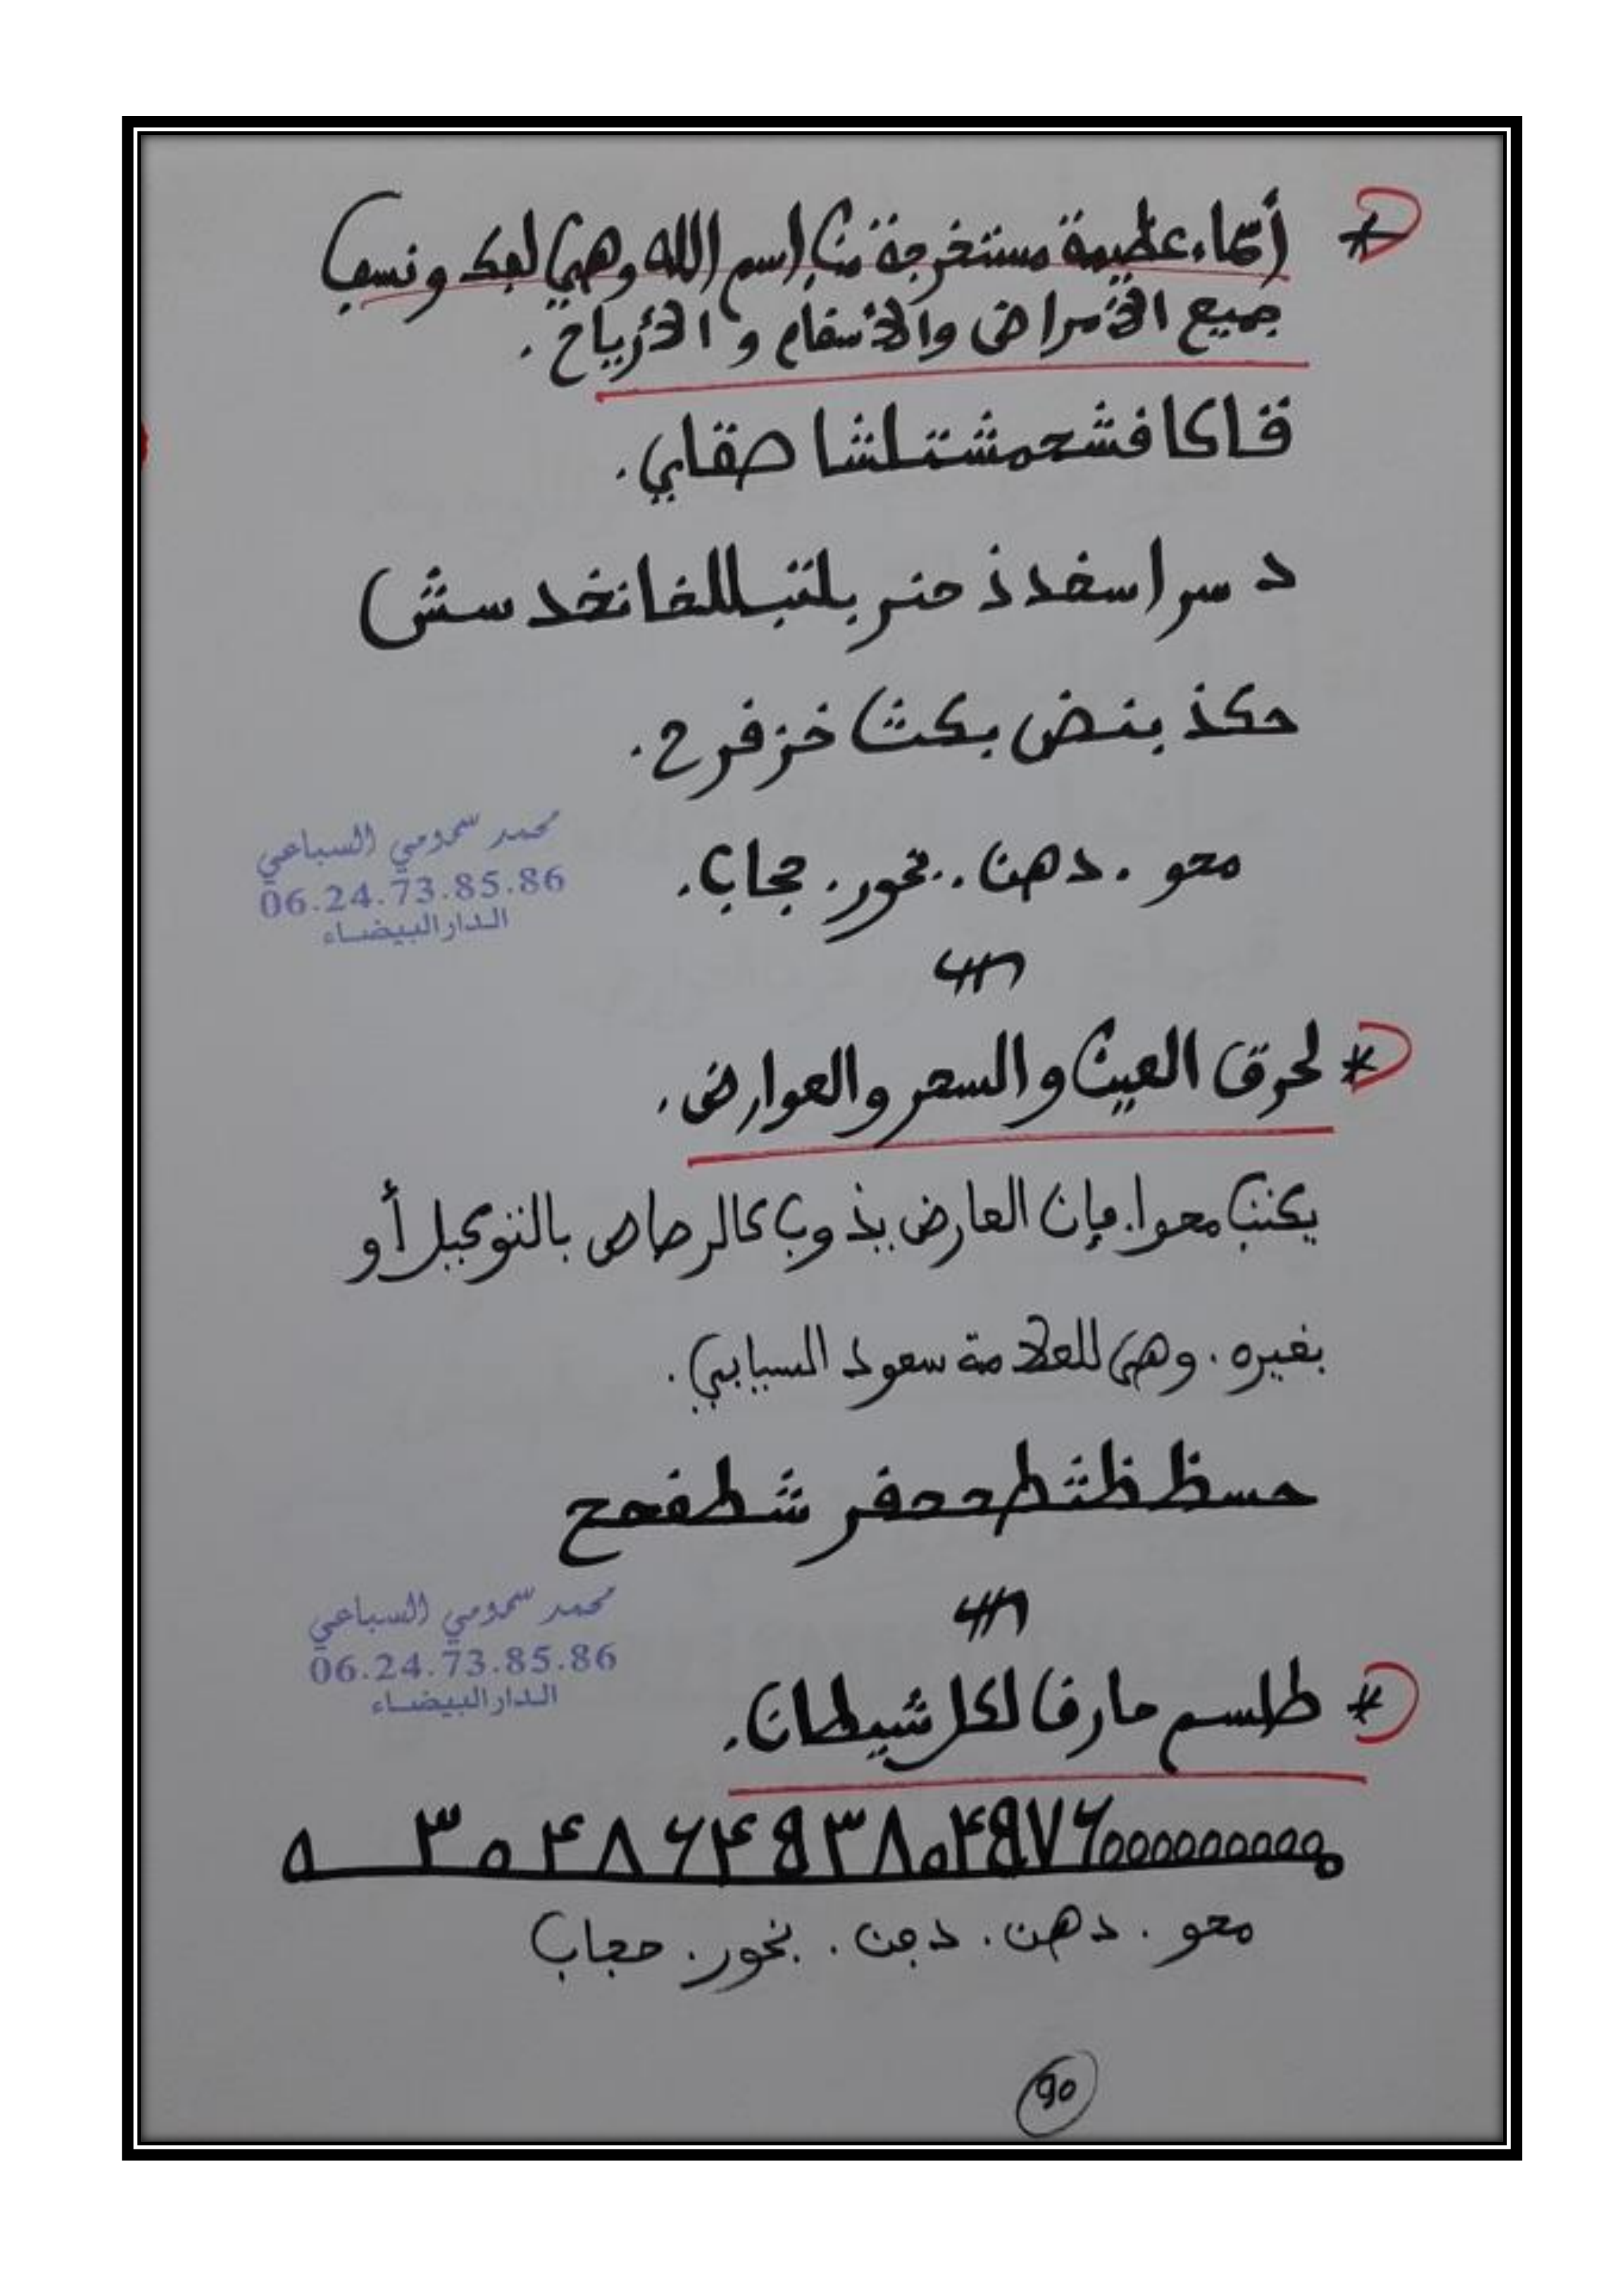 * أسماء عظيمة مستخرجة من اسم الله وهي لفك ونسف
جميع الأمراض والأسقام و الأرياح.
قاكا فشحمشتلشا صقلي.
د سر اسغدذ حنر بلتبللغا نخد سش
حكذ بنض بكث خز فرح.
محو. دهن. بخور. حجاب.
محمد سمومي السباعي
06.24.73.85.86
الدار البيضاء
* لحرق العين والسحر والعوارض.
يكتب محوا. فإن العارض يذوب كالرصاص بالتوكيل أو
بغيره. وهي للعلامة سعود السبابي.
حسظ ظثط ححفر شطفحح
محمد سمومي السباعي
06.24.73.85.86
الدار البيضاء
* طلسم حارق لكل شيطان.
محو. دهن. دفن. بخور. حجاب
90